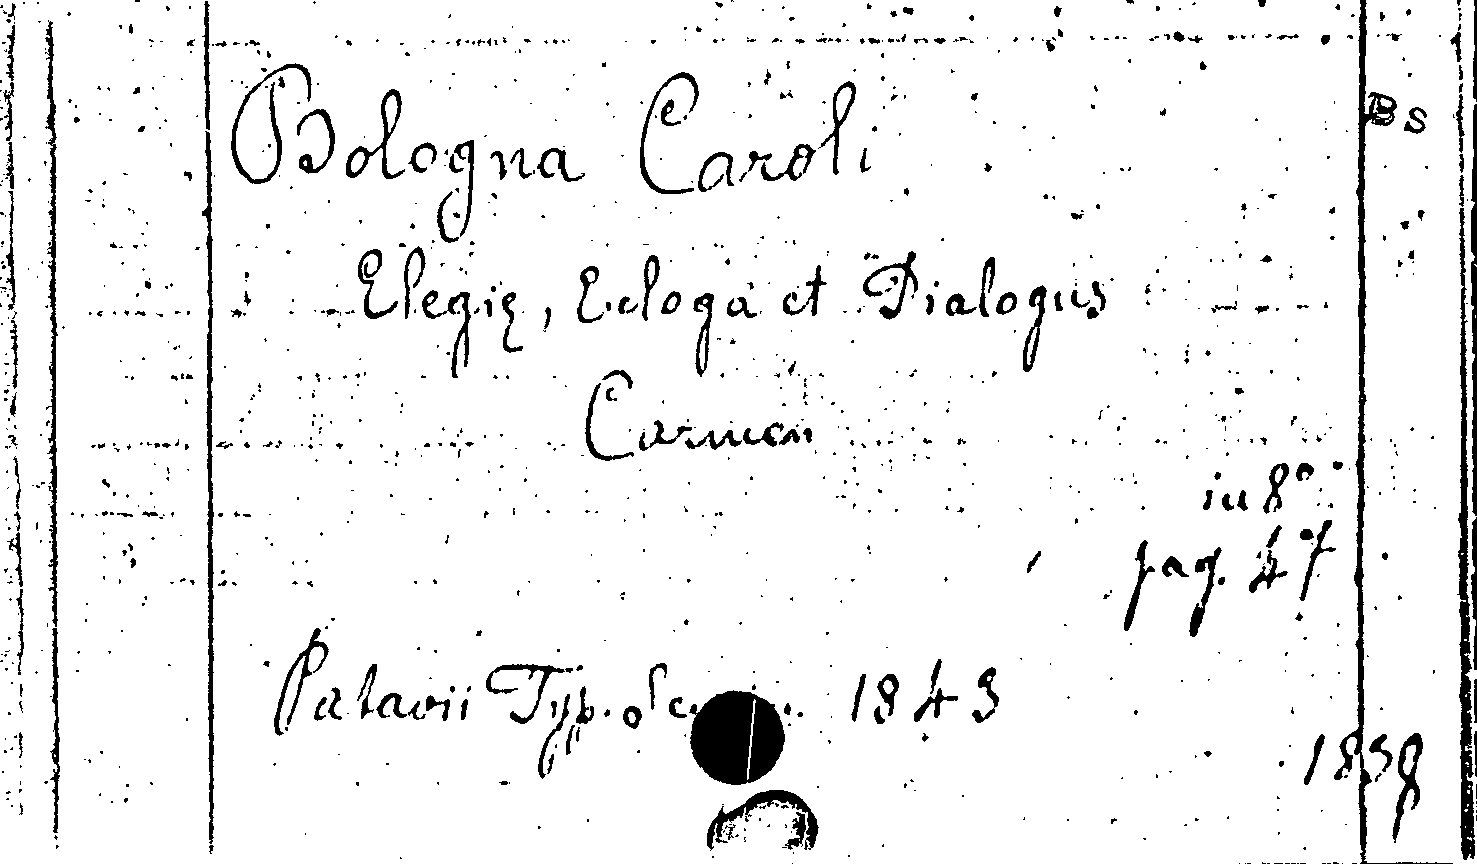 Bologna Caroli
Bs
Elegię, Ecloga et Dialogus
Carmen
in 8°
pag. 47
Patavii Typ. 1843
1839